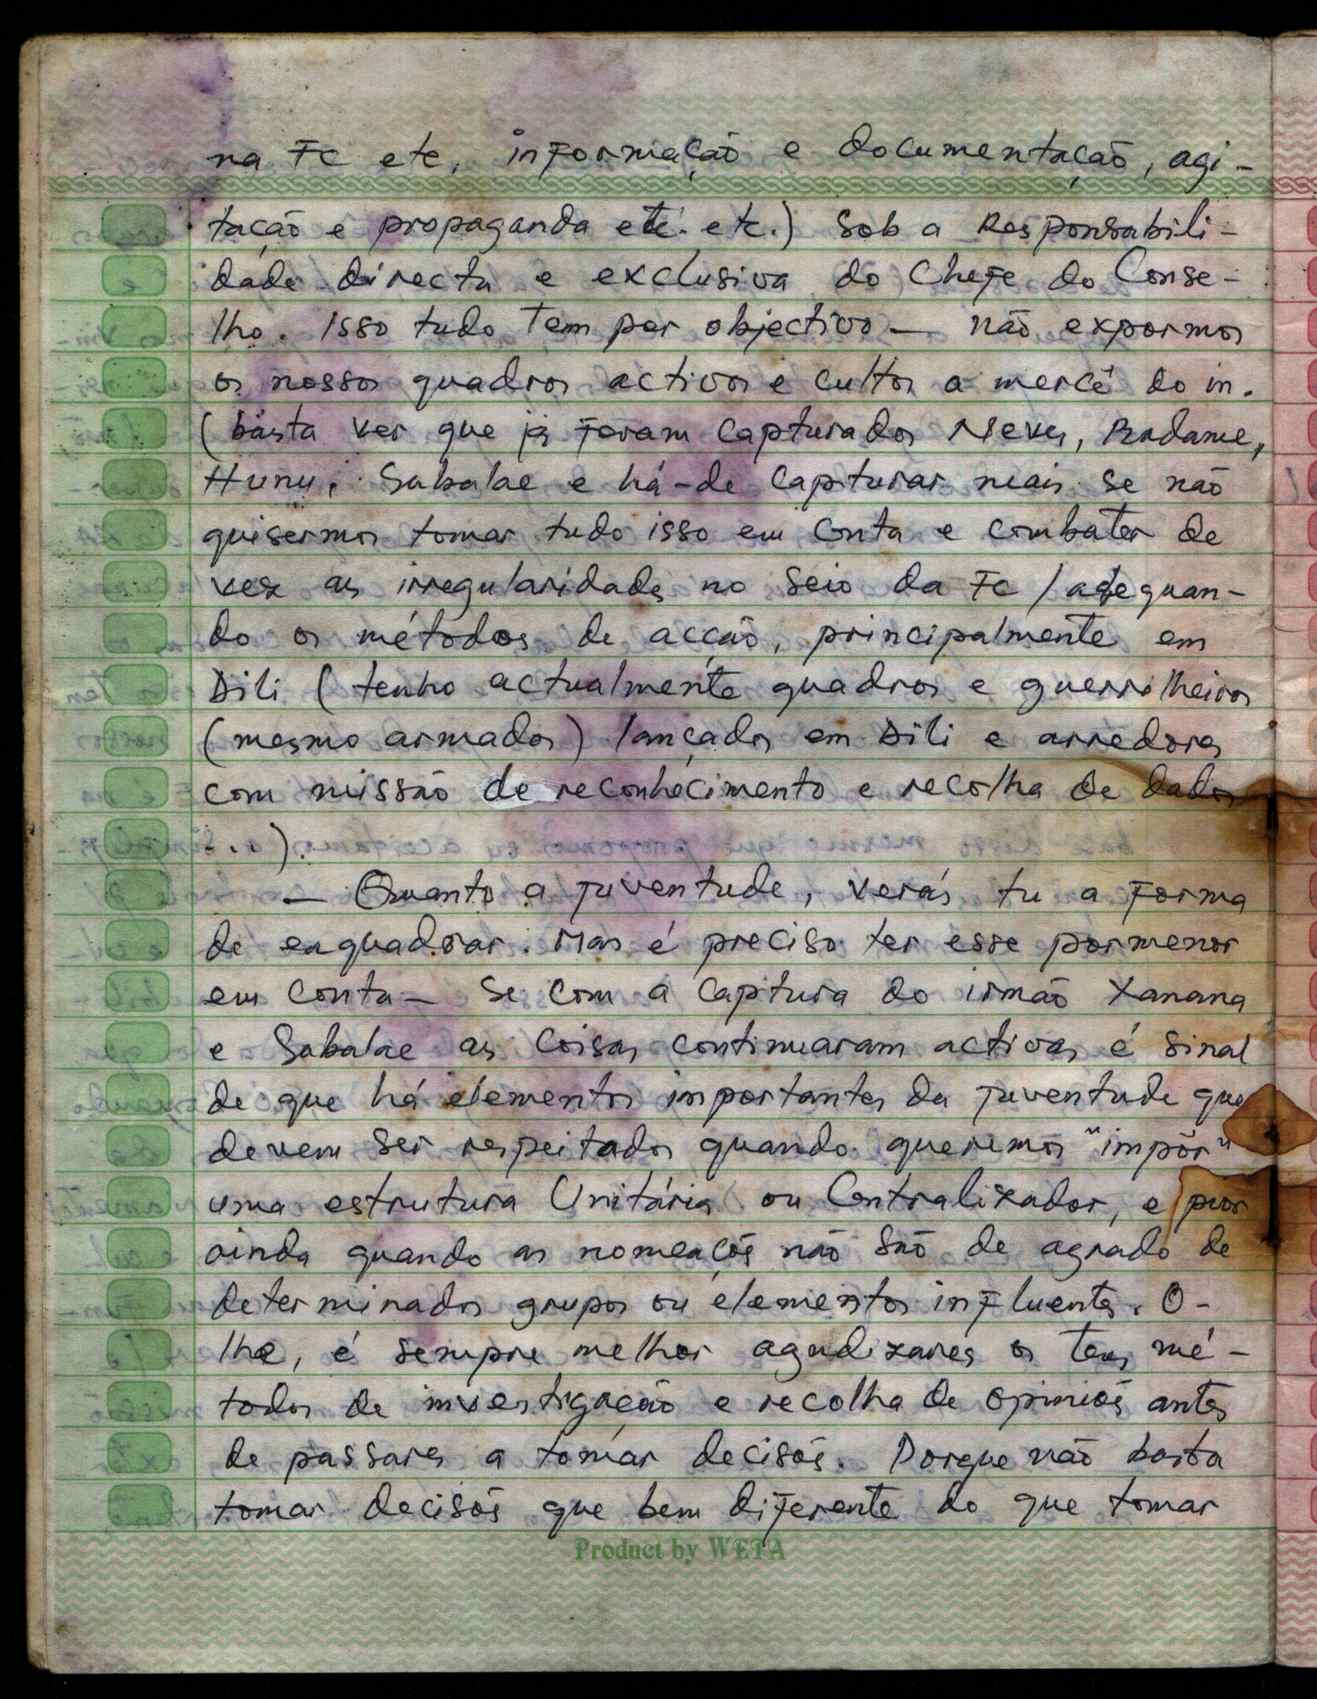 na FC etc, informação e documentação, agi-
tação e propaganda etc. etc.) sob a Responsabili-
dade directa e exclusiva do Chefe do Conse-
lho. Isso tudo tem por objectivo — não expormos
os nossos quadros activos e cultos a mercê do in.
(basta ver que já foram capturados Neves,
Hunu, Sabalae e há-de capturar mais se não
quisermos tomar tudo isso em conta e combater de
vez as irregularidades no seio da FC / adequan-
do os métodos de acção, principalmente em
Dili (tenho actualmente quadros e guerrilheiros
(mesmo armados) lançados em Dili e arredores
com missão de reconhecimento e recolha de dados
...).
— Quanto a juventude, verás tu a forma
de enquadrar. Mas é preciso ter esse pormenor
em conta — Se com a captura do irmão Xanana
e Sabalae as coisas continuaram activas é sinal
de que há elementos importantes da juventude que
devem ser respeitados quando queremos "impôr"
uma estrutura Unitária ou Centralizador, e pior
ainda quando as nomeações não são de agrado de
determinados grupos ou elementos influentes. O-
lha, é sempre melhor agudizares os teus mé-
todos de investigação e recolha de opiniões antes
de passares a tomar decisões. Porque não basta
tomar decisões que bem diferente do que tomar
Product by WETA